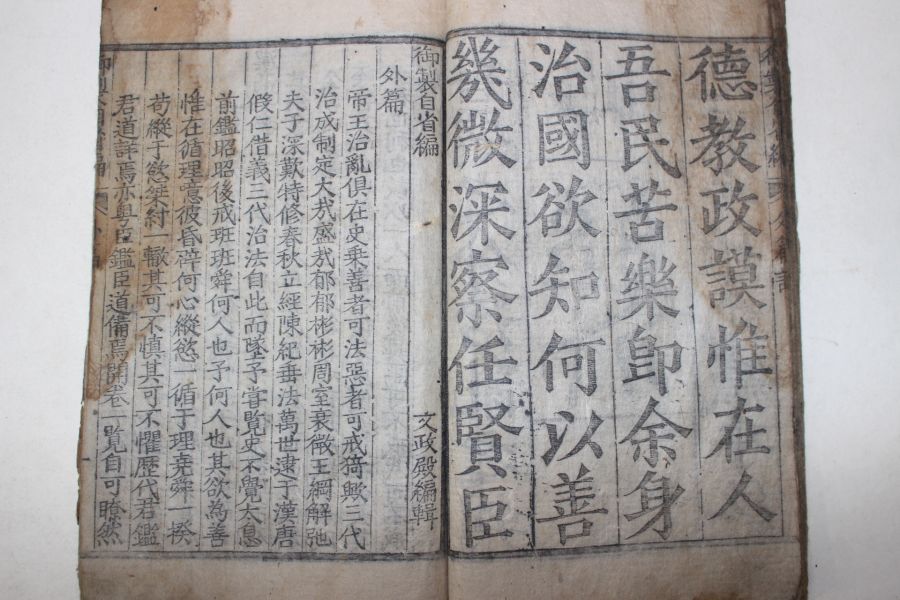 德教政謨惟在人
吾民苦樂卽余身
治國欲知何以善
幾微深察任賢臣
御製自省編 文政殿編輯
外篇
帝王治亂俱在史乗善者可法惡者可戒猗歟三代
治成制定大㦲盛㦲郁郁彬彬周室衰微王綱解弛
夫子深歎特修春秋立經陳紀垂法萬世逮于漢唐
假仁借義三代治法自此而墜予甞覧史不覺太息
前鑑昭昭後戒班班舜何人也予何人也其欲為善
惟在循理噫彼昏辟何心縱慾一循于理堯舜一揆
苟縱于慾桀紂一轍其可不慎其可不懼歷代君鑑
君道詳焉亦與臣鑑臣道備焉開卷一覽自可瞭然